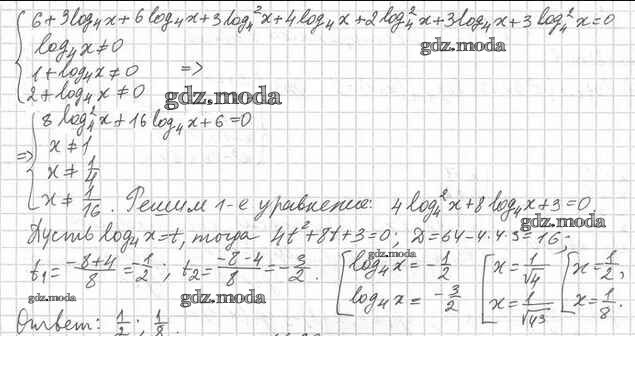 6+3log₄x+6log₄x+3log₄²x+4log₄x+2log₄²x+3log₄x+3log₄²x=0
log₄x≠0
gdz.moda
1+log₄x≠0 =>
2+log₄x≠0
gdz.moda
=> 8log₄²x+16log₄x+6=0
x≠1
x≠1/4
x≠1/16. Решим 1-е уравнение: 4log₄²x+8log₄x+3=0.
gdz.moda
Пусть log₄x=t, тогда 4t²+8t+3=0; D=64-4·4·3=16;
t₁=(-8+4)/8=-1/2; t₂=(-8-4)/8=-3/2. [log₄x=-1/2 [x=1/√4 [x=1/2,
gdz.moda
log₄x=-3/2 x=1/√4³ x=1/8.
gdz.moda
gdz.moda
Ответ: 1/2; 1/8.